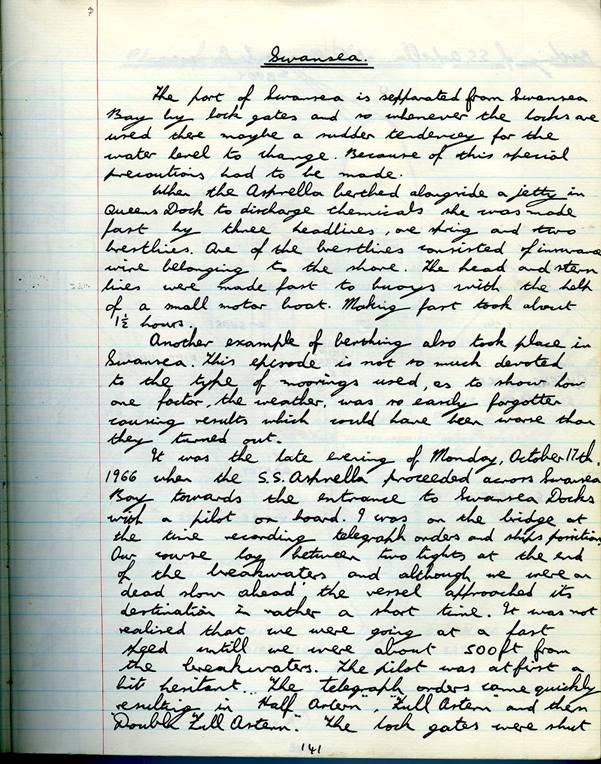 Swansea.
The port of Swansea is sepparated from Swansea
Bay by lock gates and so whenever the locks are
used there maybe a sudden tendencey for the
water level to change. Because of this special
precautions had to be made.
When the Asprella berthed alongside a jetty in
Queens Dock to discharge chemicals she was made
fast by three headlines, one spring and two
brestlines. One of the brestlines consisted of insurance
wire belonging to the shore. The head and stern
lines were made fast to buoys with the help
of a small motor boat. Making fast took about
1½ hours.
Another example of berthing also took place in
Swansea. This episode is not so much devoted
to the type of moorings used, as to show how
one factor, the weather, was so easily forgotten
causing results which could have been worse than
they turned out.
It was the late evening of Monday, October 17th,
1966 when the S.S. Asprella proceeded across Swansea
Bay towards the entrance to Swansea Docks
with a pilot on board. I was on the bridge at
the time recording telegraph orders and ships positions
Our course lay between two lights at the end
of the breakwaters and although we were on
dead slow ahead the vessel approached its
destination in rather a short time. It was not
realised that we were going at a fast
speed untill we were about 500ft from
the breakwaters. The pilot was at first a
bit hesitant... The telegraph orders came quickly
resulting in Half Astern, "Full Astern" and then
"Double Full Astern". The lock gates were shut
141